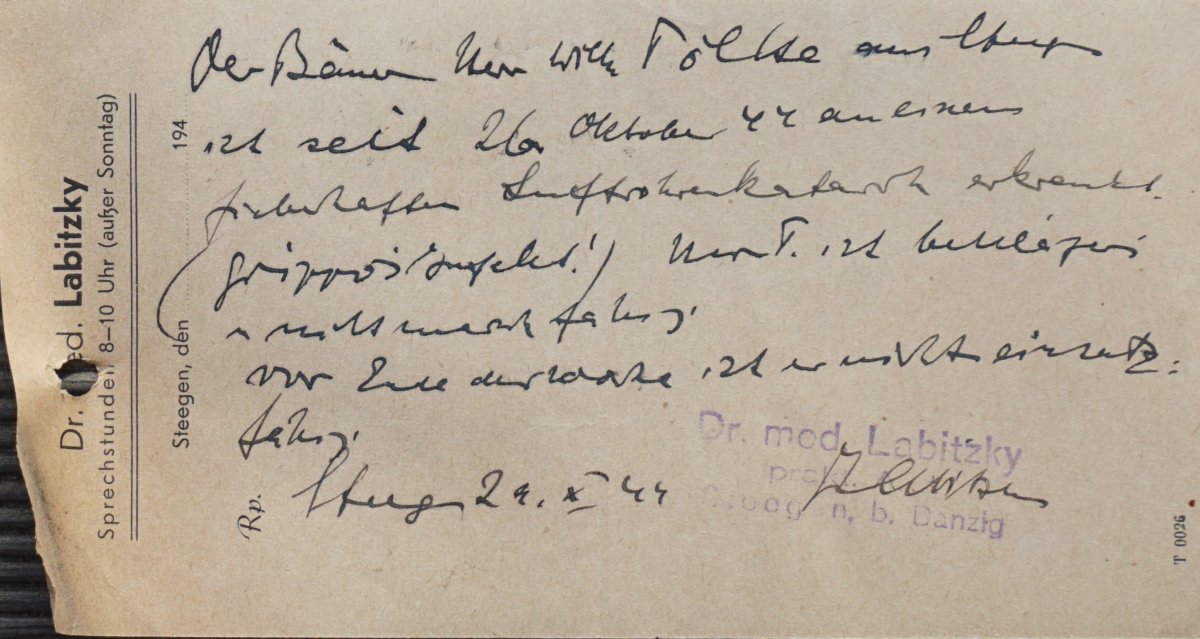 Dr. med. Labitzky
Sprechstunden 8–10 Uhr (außer Sonntag)
Steegen, den 194
Der Herr Willi Tölke aus
ist seit 26. Oktober 44 an einem
fieberhaften Luftröhrenkatarrh erkrankt.
Herr T. ist bettlägerig
u nicht marschfähig.
vor Ende der Woche ist er nicht einsatz-
fähig.
Rp.
Steegen 29. X 44
Dr. med. Labitzky
prakt.
Steegen, b. Danzig
T 0026